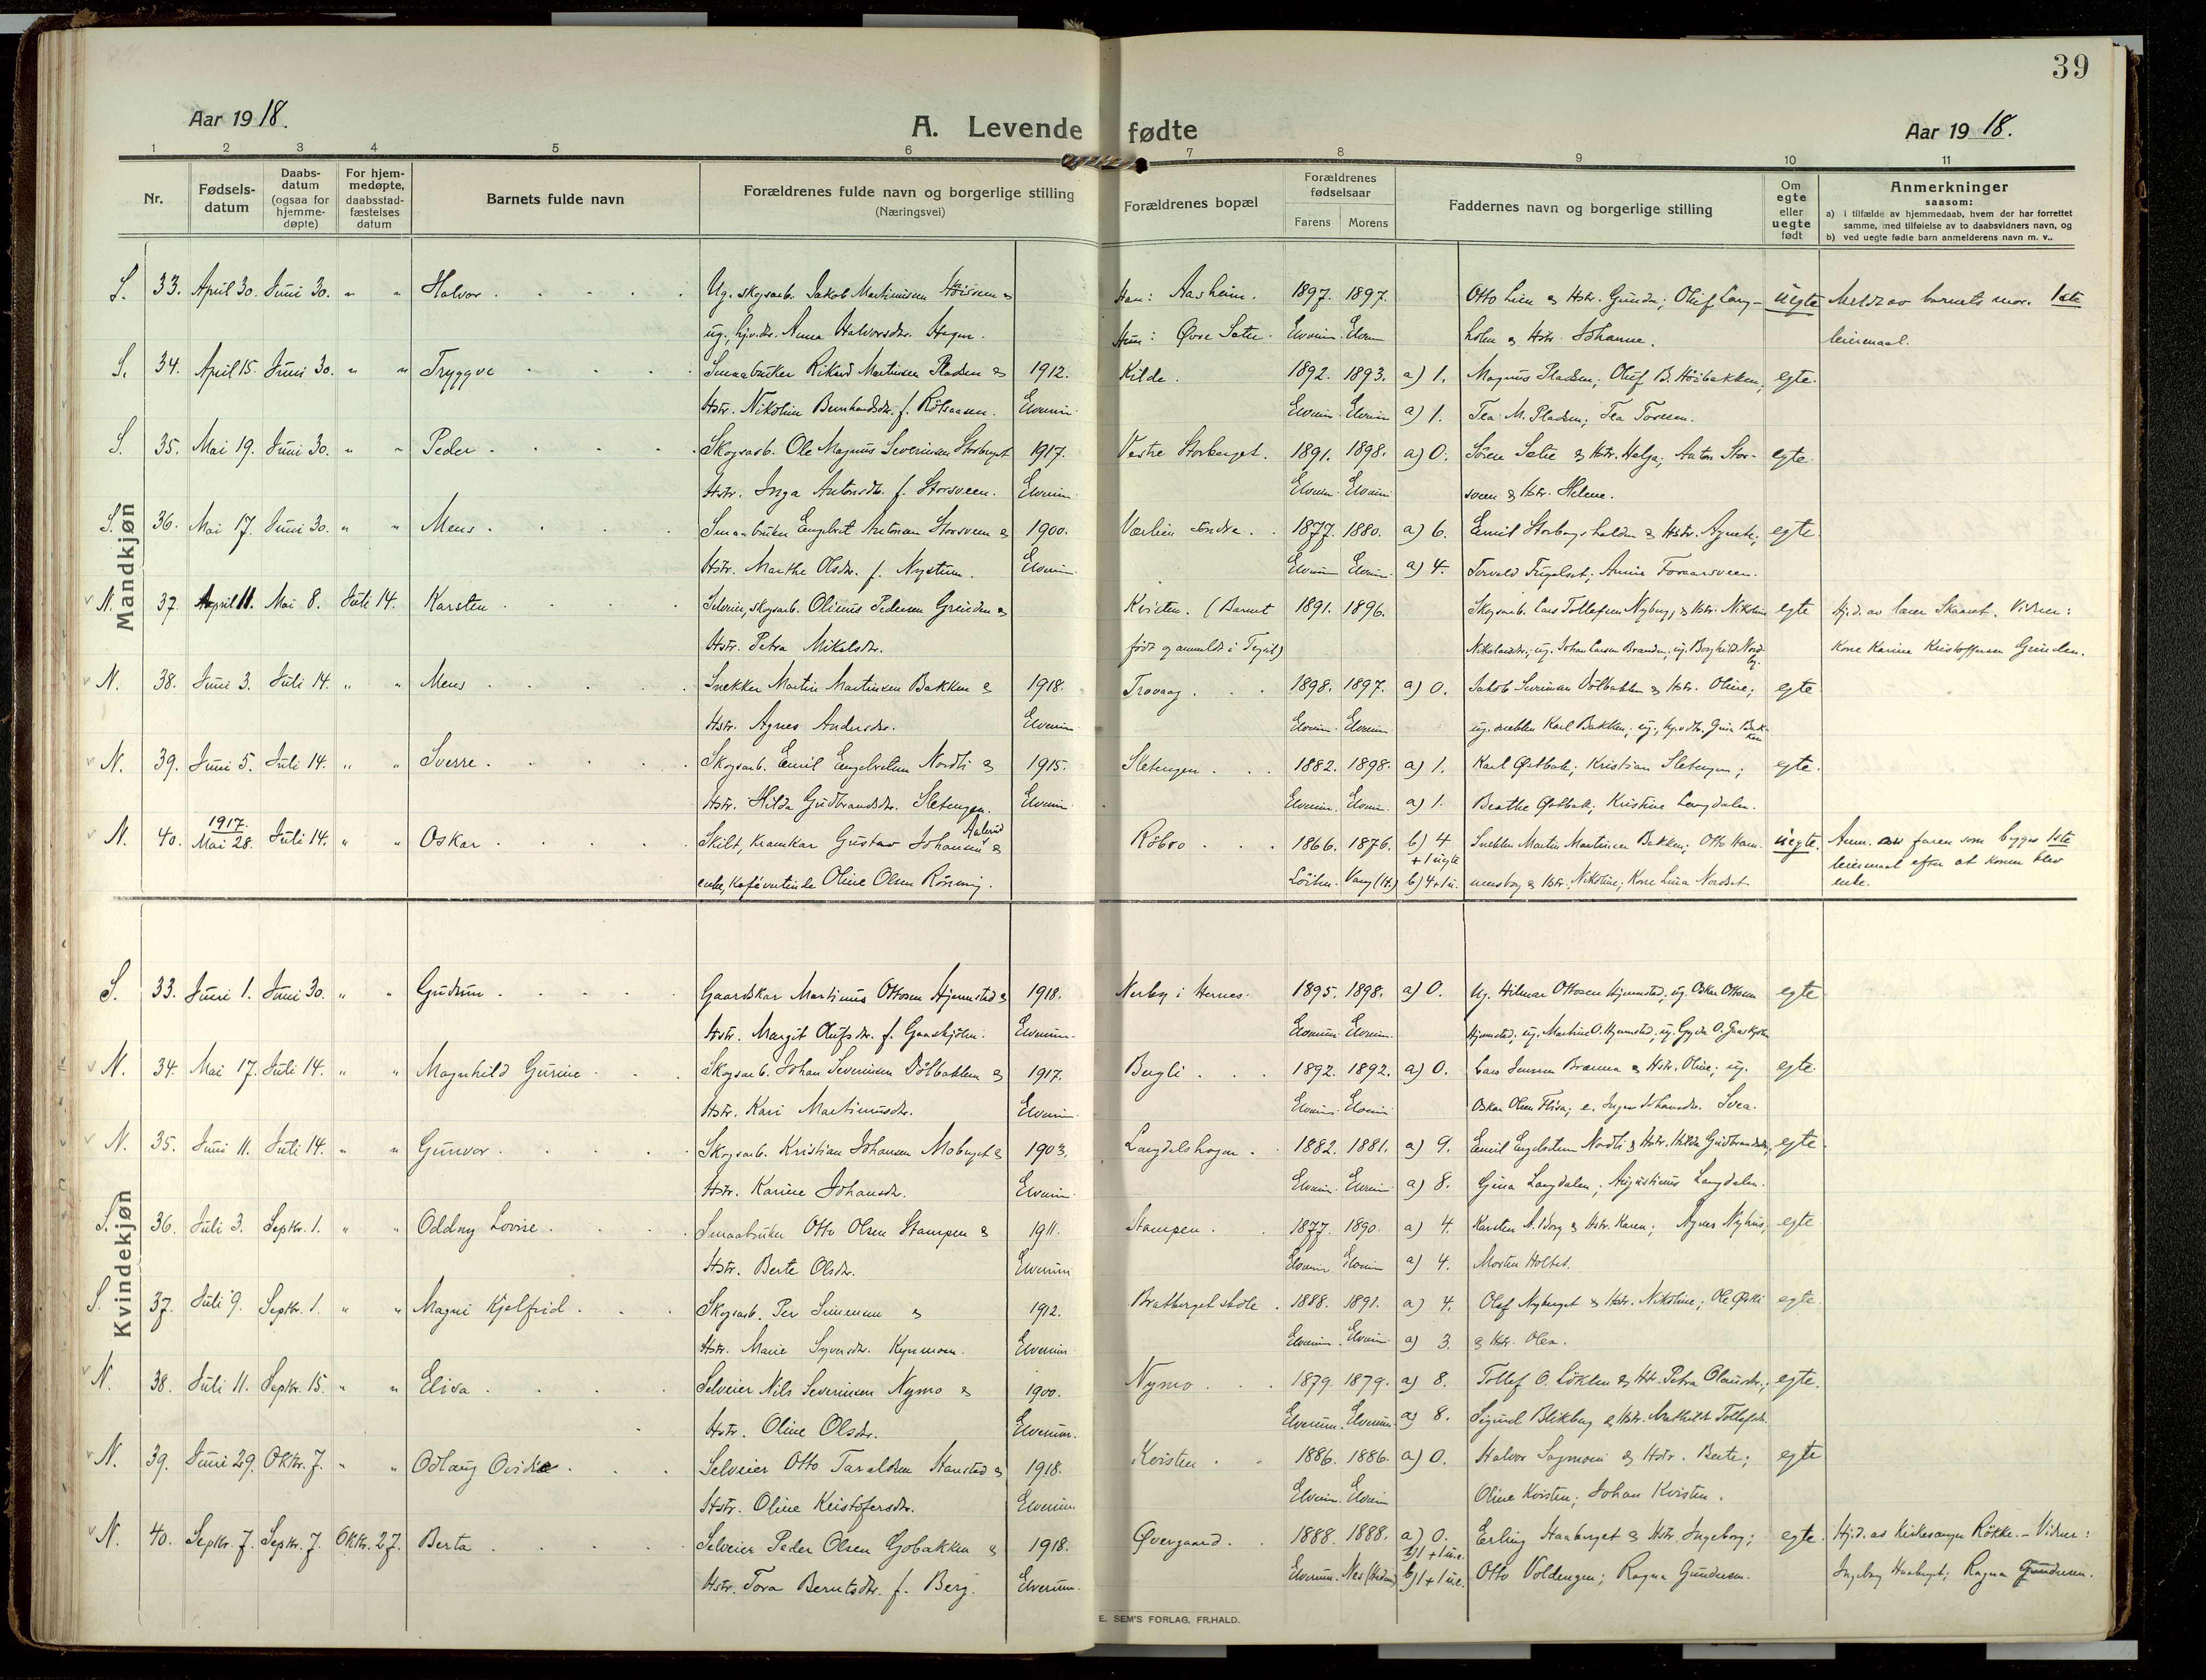 39
Aar 1918.
A. Levende fødte
Aar 1918.
1 2 3 4 5 6 7 8 9 10 11
Nr. Fødsels-datum Daabs-datum (ogsaa for hjemme-døpte) For hjem-medøpte, daabsstad-fæstelses datum Barnets fulde navn Forældrenes fulde navn og borgerlige stilling (Næringsvei) Forældrenes bopæl Forældrenes fødselsaar Farens Morens Faddernes navn og borgerlige stilling Om egte eller uegte født Anmerkninger saasom: a) i tilfælde av hjemmedaab, hvem der har forrettet samme, med tilføielse av to daabsvidners navn, og b) ved uegte fødte barn anmelderens navn m. v..
Mandkjøn
S. 33. April 30. Juni 30. " " Halvor Ug. skogsarb. Jakob Martinusen & Han: Aasheim. 1897. 1897. Otto Lien & Hstr. Gunda; Oluf Lang- uegte Meldt av barnets mor. 1ste
ug. hjv.dtr. Anna Halvorsdtr. Hagen. Hun: Øvre Sætre. Elverum. Elverum holen & Hstr. Johanne. leiermaal.
S. 34. April 15. Juni 30. " " Tryggve Smaabruker Rikard Martinsen Pladsen & 1912. Kilde. 1892. 1893. a) 1. Magnus Pladsen; Oluf B. Höibakken; egte.
Hstr. Nikoline Bernhardsdtr. f. Elverum Elverum Elverum a) 1. Tea M. Pladsen; Tea Toresen.
S. 35. Mai 19. Juni 30. " " Peder Skogsarb. Ole Magnus Severinsen Storberget 1917. Vestre Storberget. 1891. 1898. a) 0. Sören Sætre & Hstr. Helga; Anton Stor- egte.
Hstr. Inga Antonsdtr. f. Storsveen. Elverum Elverum Elverum sveen & Hstr. Helene.
S. 36. Mai 17. Juni 30. " " Mens Smaabruker Engebret Antonsen Storsveen & 1900. Værlien söndre. 1877. 1880. a) 6. Emil & Hstr. Agnete; egte.
Hstr. Marthe Olsdtr. f. Nystuen. Elverum Elverum Elverum a) 4. Torvald; Annie
N. 37. April 11. Mai 8. Juli 14. Karsten Selveier, skogsarb. Olimus Pedersen Grinden & Kvisten. (Barnet 1891. 1896. Skogsarb. Lars Tollefsen Nyberg, & Hstr. Nikoline egte Hj.d. av lærer Skaaret. Vidner:
Hstr. Petra Mikelsdtr. født og anmeldt i Trysil) Nikolaidtr.; ug. Johan Larsen Branden, ug. Borghild Nord- by. Kone Karine Kristoffersen Grinden.
N. 38. Juni 3. Juli 14. " " Mens Snekker Martin Martinsen Bakken & 1918. Trovaag. 1898. 1897. a) 0. Jakob Severinsen Dölbakken & Hstr. Oline; egte.
Hstr. Agnes Andersdtr. Elverum Elverum Elverum ug. snekker Karl Bakken; ug., hj.v.dtr. Gina Bak- ken
N. 39. Juni 5. Juli 14. " " Sverre Skogsarb. Emil Engelretsen Nordli & 1915. Sletengen. 1882. 1898. a) 1. Karl Östbak; Kristian Sletengen; egte.
Hstr. Hilda Gudbrandsdtr. Sletengen. Elverum Elverum. Elverum. a) 1. Beathe Östbak; Kristine Langdalen.
N. 40. 1917. Mai 28. Juli 14. " " Oskar Skilt, kramkar Gustav Johansen & Röbro 1866. 1876. b) 4 + 1 uegte Snekker Martin Martinsen Bakken; Otto Ham- uegte. Anm. av faren som begges 1ste
enke, kaféværtinde Oline Olsen Rönning. Löiten. Vang (H.) b) 4+1u. mersborg & Hstr. Nikoline; Kone Lina Nordset leiermaal efter at konen blev enke.
Kvindekjøn
S. 33. Juni 1. Juni 30. " " Gudrun Gaardskar Martinus Ottosen Hjemstad & 1918. Nerby i Hernes. 1895. 1898. a) 0. Ug. Hilmar Ottosen Hjemstad; ug. Oskar Ottosen egte
Hstr. Margit Olufsdtr. f. Elverum. Elverum Elverum. Hjemstad; ug. Martine O. Hjemstad; ug. Gyda O.
N. 34. Mai 17. Juli 14. " " Magnhild Gurine Skogsarb. Johan Severinsen Dölbakken & 1917. Bergli 1892. 1892. a) 0. Lars Jensen Brænna & Hstr. Oline; ug. egte.
Hstr. Kari Martinusdtr. Elverum. Elverum. Elverum Oskar Olsen Flisa; e. Inger Johansdtr. Svea.
N. 35. Juni 11. Juli 14. " " Gunvor Skogsarb. Kristian Johansen Moberget & 1903. Langdalshagen. 1882. 1881. a) 9. Emil Engelretsen Nordli & Hstr. Hilda Gudbrandsdtr.; egte.
Hstr. Karine Johansdtr. Elverum. Elverum. Elverum a) 8. Gina Langdalen; Augustinus Langdalen.
S. 36. Juli 3. Septbr. 1. " " Oddny Lovise Smaabruker Otto Olsen Stampen & 1911. Stampen. 1877. 1890. a) 4. Karsten A. Borg & Hstr. Karen; Agnes Nyhus; egte
Hstr. Berte Olsdtr. Elverum Elverum Elverum a) 4. Morten Holtet.
S. 37. Juli 9. Septbr. 1. " " Magni Kjelfrid Skogsarb. Per Simensen & 1912. Bratberget skole. 1888. 1891. a) 4. Olaf Nyberget & Hstr. Nikoline; Ole egte.
Hstr. Marie Syversdtr. Kynmoen. Elverum Elverum. Elverum a) 3. & Hstr. Olea.
N. 38. Juli 11. Septbr. 15. " " Elisa Selveier Nils Severinsen Nymo & 1900. Nymo 1879. 1879. a) 8. Tollef O. Löklen & Hstr. Petra Olausdtr.; egte.
Hstr. Oline Olsdtr. Elverum. Elverum. Elverum. a) 8. Sigurd Blikberg & Hstr. Mathilde Tollefsdtr.
N. 39. Juni 29. Oktbr. 7. " " Odlaug Ovidie Selveier Otto Taraldsen Hanstad & 1918. Kvisten 1886. 1886. a) 0. Halvor Sagmoen & Hstr. Berte; egte
Hstr. Oline Kristofersdtr. Elverum Elverum. Elverum Oline Kvisten; Johan Kvisten.
N. 40. Septbr. 7. Septbr. 7. Oktbr. 27. Berta Selveier Peder Olsen Gobakken & 1918. Øvergaard. 1888. 1888. a) 0. b) 1 + 1 u.e. Erling Haaberget & Hstr. Ingeborg; egte. Hj.d. av Kirkesanger Røkke. - Vidner:
Hstr. Tora Berntsdtr. f. Berg. Elverum. Elverum. Nes (Hedm) b) 1 + 1 u.e. Otto Voldengen; Ragna Gundersen. Ingeborg Haaberget; Ragna Gundersen.
E. SEM'S FORLAG, FR.HALD.